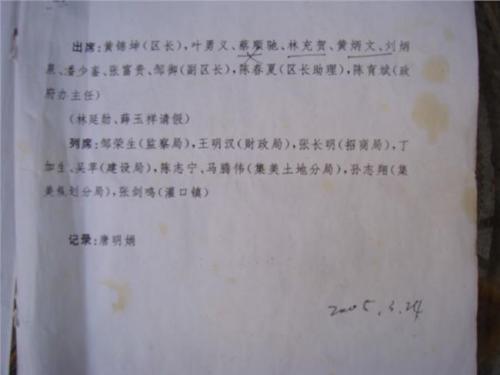 出席:黄锦坤(区长),叶勇义、蔡顺驰、林充贺、黄炳文、刘炳
泉、潘少銮、张富贵、邹御(副区长),陈春夏(区长助理),陈育斌(政
府办主任)
(林延勋、薛玉祥请假)
列席:邹荣生(监察局),王明汉(财政局),张长明(招商局),丁
加生、吴苹(建设局),陈志宁、马腾伟(集美土地分局),孙志翔(集
美规划分局),张剑鸣(灌口镇)
记录:唐明娟
2005.3.24